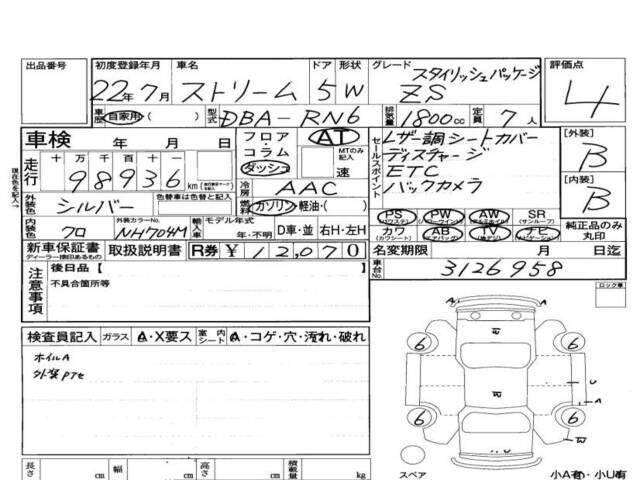 出品番号
初度登録年月 車名 ドア 形状 グレード 評価点
22年7月 ストリーム 5 W スタイリッシュパッケージ
ZS 4
車歴 自家用( ) 型式 DBA-RN6 排気量 1800cc 定員 7人
車検 年 月 日
フロア コラム ダッシュ AT MTのみ記入 速
セールスポイント
レザー調シートカバー
ディスチャージ
ETC
バックカメラ
[外装] B
[内装] B
走行 十万千百十一
98936 km
冷房 AAC
外装色 シルバー 色替車は色替と記入
燃料 ガソリン・軽油・( )
PS PW AW SR
(パワステ) (パワーウィンド) (アルミホイル) (サンルーフ)
カワ AB TV ナビ
(カワシート) (エアバッグ) (地デジ) (ナビゲーション)
純正品のみ丸印
内装色 クロ 外装カラーNo. NH704M 輸入車 モデル年式 年・不明 D車・並 右H・左H
新車保証書 取扱説明書 R券 ¥12,070
ディーラー捺印あるもの
名変期限 月 日迄
車台No. 3126958
注意事項
後日品[ ]
不具合箇所等
現在色を記入→
ロック車
検査員記入 ガラス A・X要ス 室内シート A・コゲ・穴・汚れ・破れ
ホイルA
外装PTセ
6 6
U
A
6 6
スペア
小A有 小U有
長さ cm 幅 cm 高さ cm 積載量 kg